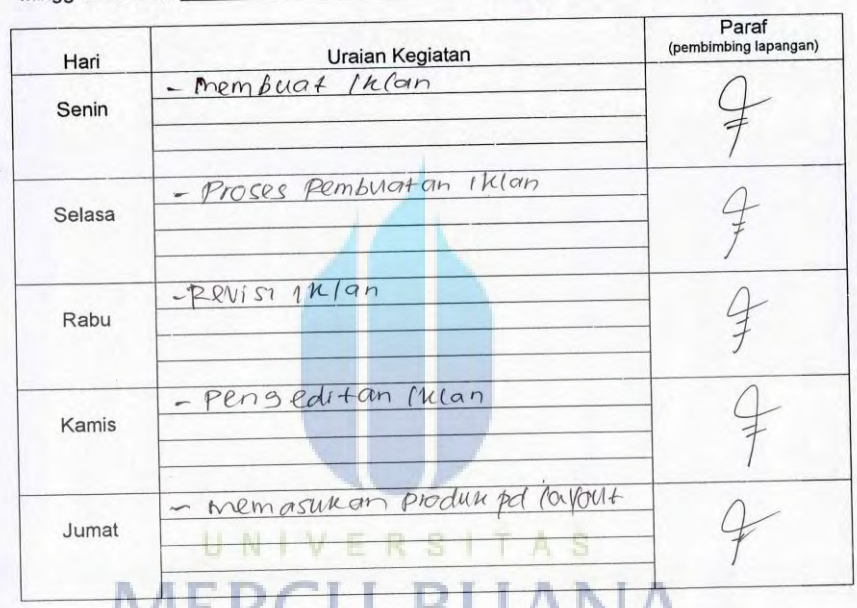 Hari Uraian Kegiatan Paraf
(pembimbing lapangan)
Senin - Membuat Iklan
Selasa - Proses Pembuatan Iklan
Rabu - Revisi Iklan
Kamis - Pengeditan Iklan
Jumat - memasukan produk pd layout
UNIVERSITAS
MERCU BUANA